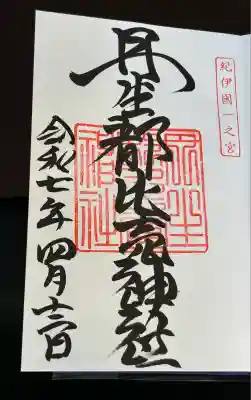 紀伊國一之宮
丹生都比売神社
令和七年四月十三日